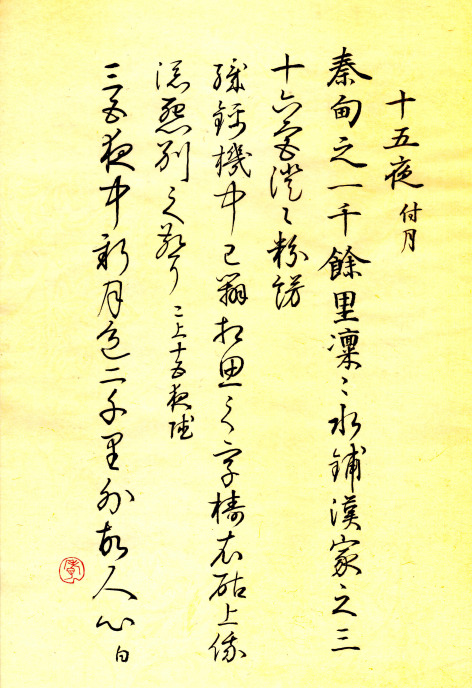 十五夜 付月
秦甸之一千餘里凜〻氷鋪漢家之三
十六宮澄〻粉餝
織錦機中已辨相思之字擣衣砧上俄
添怨別之聲 已上十五夜賦
三五夜中新月色二千里外故人心 白